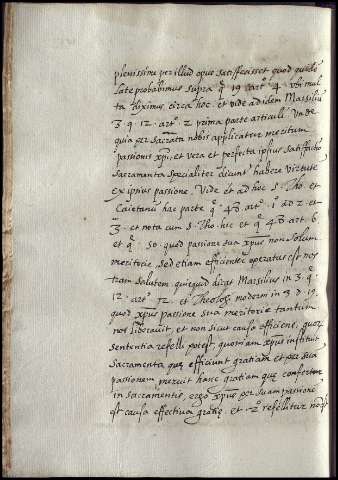 plenissime per illud opus satisfecisset quod quidem
late probabimus supra q. 19 art. 4. vbi mul
ta diximus circa hoc. et vide ad idem Marsiliū
3. q. 12. artº. 2 prima parte articuli Vnde
quia per sacrāta nobis applicatur meritum
passionis xpi, et vera et perfecta ipsius satisfactio
sacramenta specialiter dicunt habere virtutē
ex ipsius passione. Vide et ad hoc S. Tho. et
Caietanū hac parte q. 48 artº. 1º ad 2 et
3. et nota cum S. Tho hic et q. 48 art. 6.
et q. 50. quod passione sua xpus non solum
meritorie, sed etiam efficienter operatus est nos
tram salutem. quicquid dicat Marsilius in 3. q.
12. artº. 2. et Theolog. moderni in 3 d. 19.
quod xpus passione sua meritorie tantum
nos liberavit, et non sicut causa efficiens, quorū
sententia refelli potest, quoniam xpus instituit
sacramenta quę efficiunt gratiam et per suā
passionem meruit hanc gratiam quę confertur
in sacramentis, ergo xpus per suam passionē
est causa effectiva gratię. et 2º refellitur